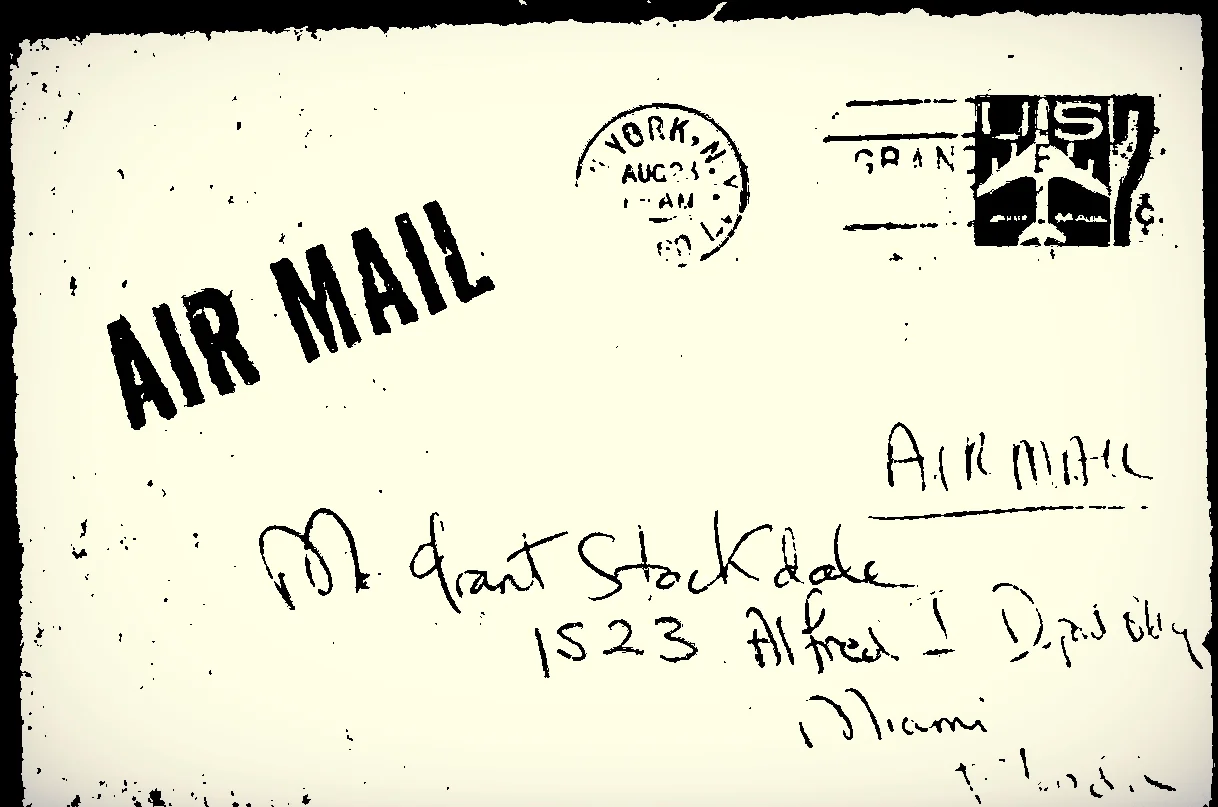 YORK, N.Y.
AUG 23
AM
60
GRAN
US
7
AIR MAIL
C
AIR MAIL
AIR MAIL
Mr Grant Stockdale
1523 Alfred I Dupont Bldg
Miami
Florida